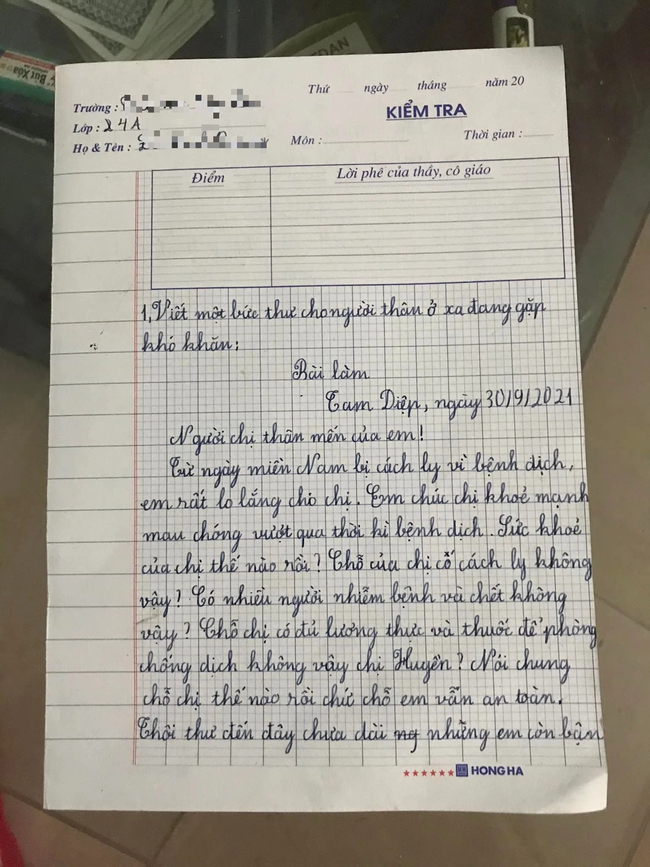 Bút Xóa
Thứ ngày tháng năm 20
Trường :
KIỂM TRA
Lớp : 24A
Họ & Tên :
Môn : Thời gian :
Điểm Lời phê của thầy, cô giáo
1, Viết một bức thư cho người thân ở xa đang gặp
khó khăn:
Bài làm
Tam Diệp, ngày 30/9/2021
Người chị thân mến của em!
Từ ngày miền Nam bi cách ly vì bệnh dịch,
em rất lo lắng cho chị. Em chúc chị khoẻ mạnh
mau chóng vượt qua thời kì bệnh dịch. Sức khoẻ
của chị thế nào rồi? Chỗ của chị cố cách ly không
vậy? Có nhiều người nhiễm bệnh và chết không
vậy? Chỗ chị có đủ lương thực và thuốc để phòng
chống dịch không vậy chị Huyền? Nói chung
chỗ chị thế nào rồi chứ chỗ em vẫn an toàn.
Thôi thư đến đây chưa dài ng những em còn bận
HONG HA